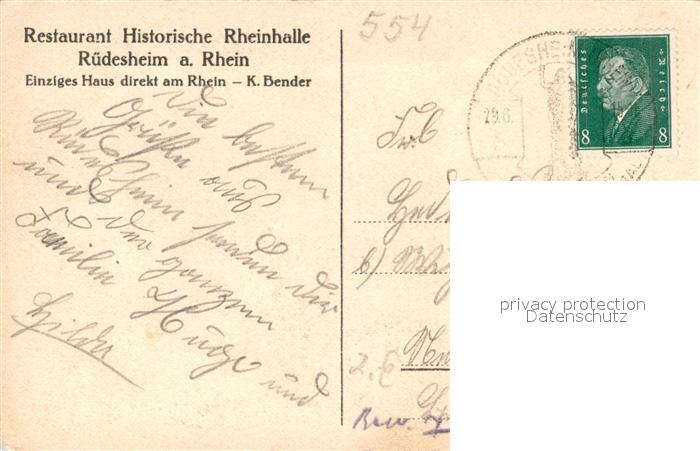 Restaurant Historische Rheinhalle
Rüdesheim a. Rhein
Einziges Haus direkt am Rhein – K. Bender
Die besten
Grüße aus
Rüdesheim senden dir
und der ganzen
Familie Hugo und
Hilda
554
29.8.
Deutsches Reich
8 8
Frl.
b)
z. E
privacy protection
Datenschutz